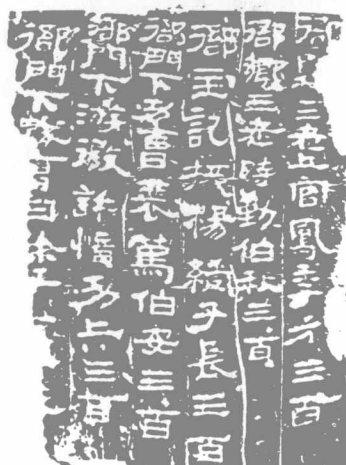 衙縣三老上官鳳季方三百
衙鄉三老時勤伯秋三百
衙主記掾楊綬子長三百
衙門下功曹裴篤伯安三百
衙門下游徼許愔功上三百
衙門下賊曹